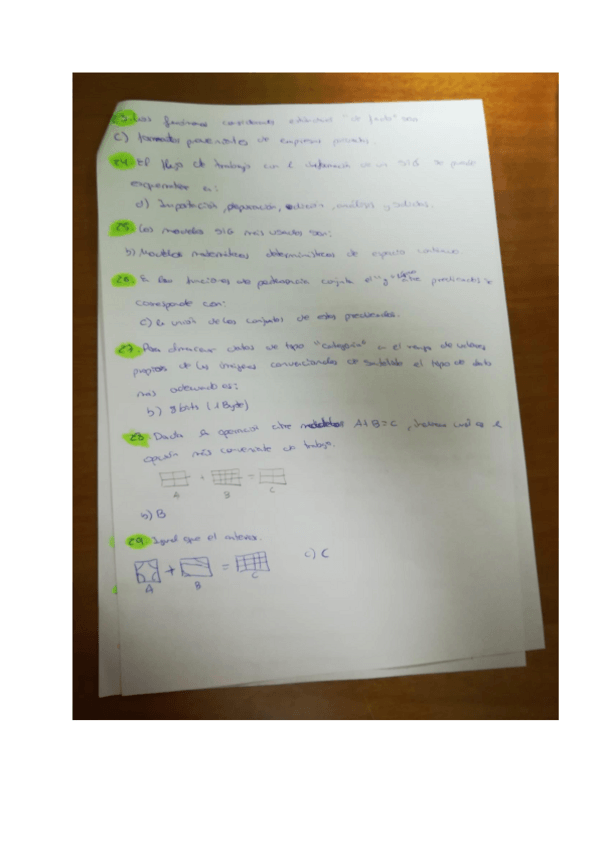 23. Los considerados "de facto" son
c) formatos provenientes de empresas privadas.
24. El flujo de trabajo con la información de un SIG se puede
esquematizar en:
d) Importación, preparación, edición, análisis y salidas.
25. Los modelos SIG más usados son:
b) Modelos matemáticos determinísticos de espacio continuo
26. En las funciones de pertenencia conjunta el "y" entre predicados se
corresponde con:
c) la unión de los conjuntos de estos predicados.
27. Para almacenar datos de tipo "categoría" en el rango de valores
propios de las imágenes convencionales de satélite el tipo de dato
más adecuado es:
b) 8 bits (1 Byte)
28. Dada la operación entre A+B=C, indicar cuál es la
opción más conveniente de trabajo.
+ =
A B C
b) B
29. Igual que el anterior.
+ = c) C
A B C